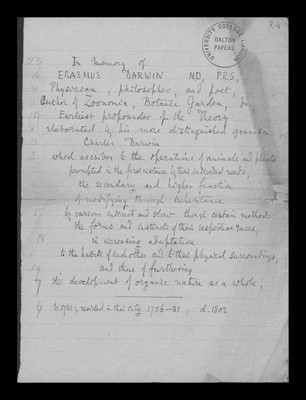 UNIVERSITY COLLEGE LONDON
GALTON PAPERS
In Memory of
ERASMUS DARWIN MD, F.R.S,
Physician, philosopher, and poet;
Author of Zoonomia, Botanic Garden, &c
Earliest propounder of the Theory
elaborated by his more distinguished grandson
Charles Darwin
which ascribes to the operations of animals and plants
prompted in the first instance by their individual needs,
the secondary and higher function
of modifying through inheritance
by various indirect and slow though certain methods
the forms and instincts of their respective races,
in increasing adaptation
to the habits of each other and to their physical surroundings,
and thus of furthering
the development of organic nature as a whole.
b. 1731; resided in this city 1756–81; d. 1802